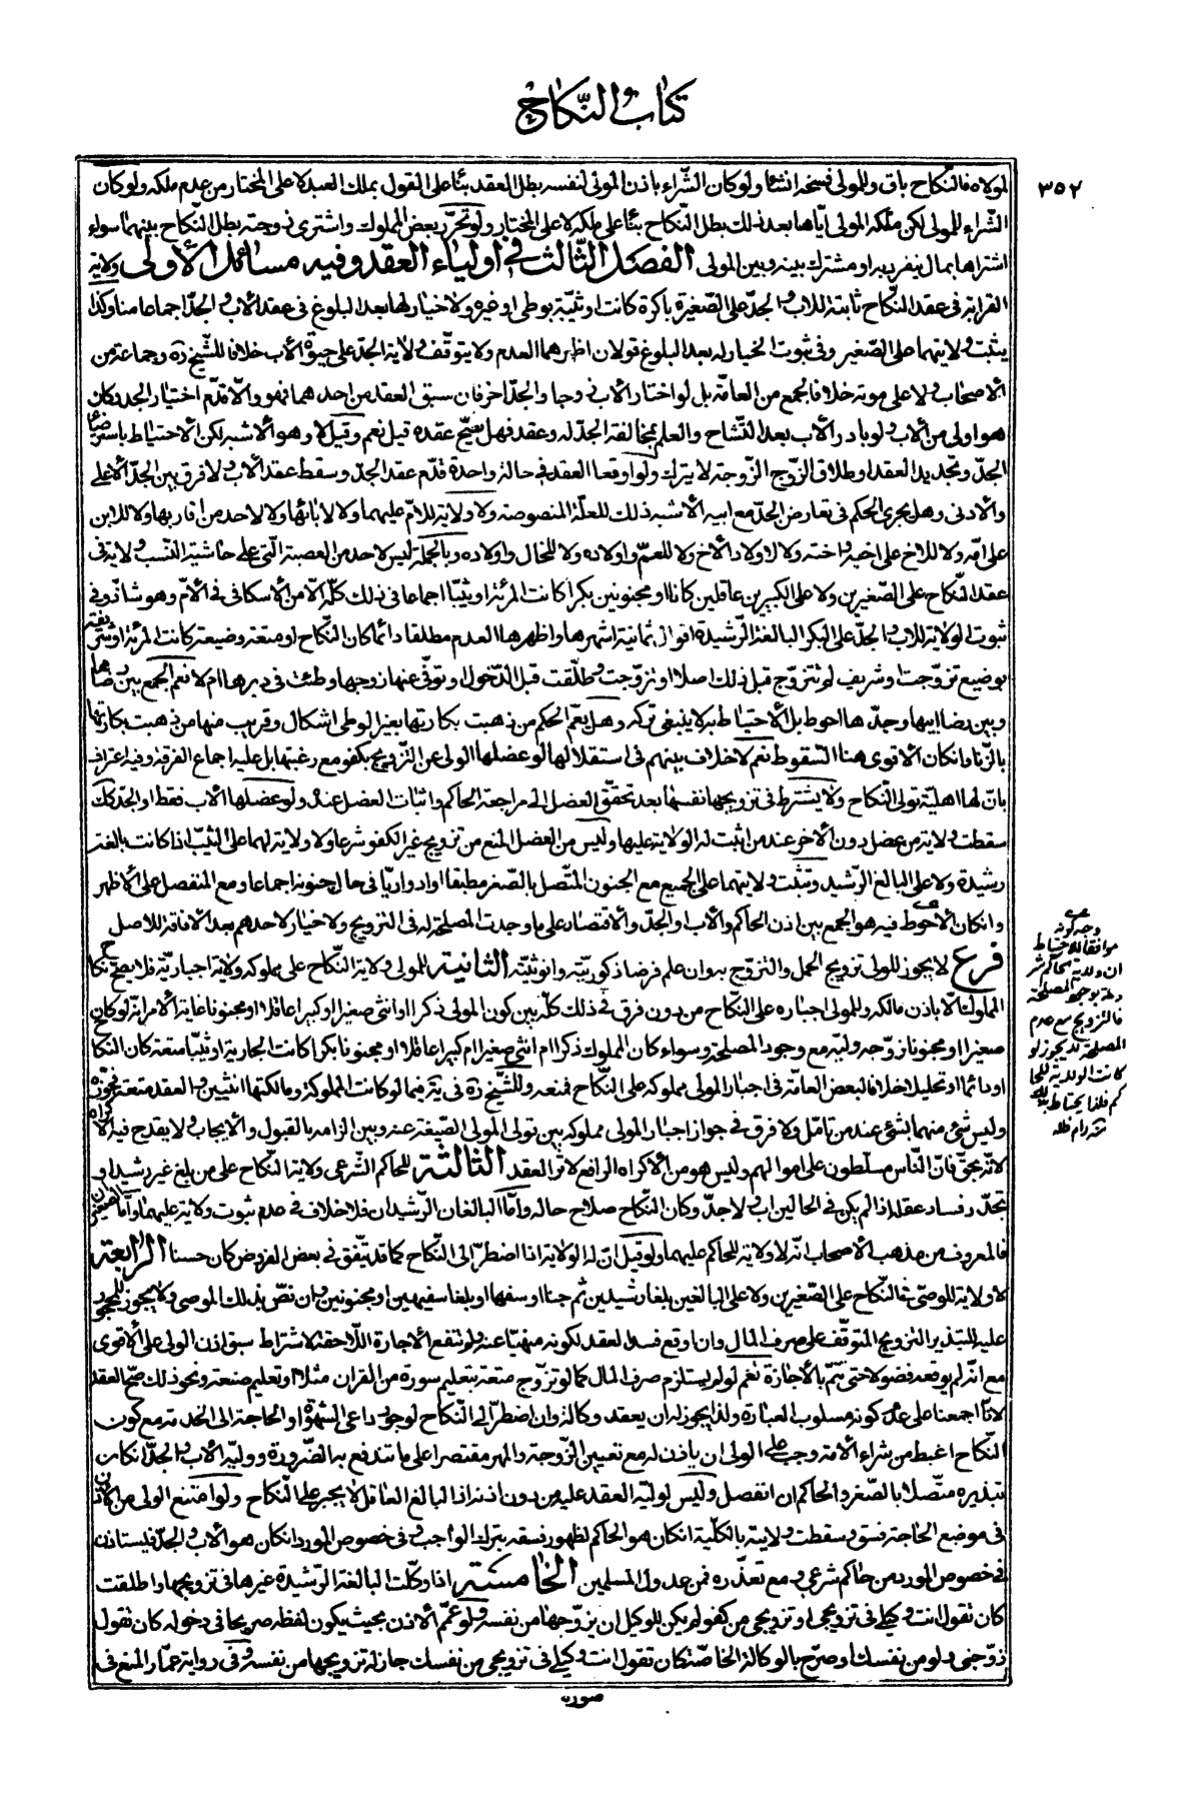 كتاب النكاح
٣٥٢
لمولاه فالنكاح باق وللمولى فسخه انشاء ولو كان الشراء باذن المولى لنفسه بطل العقد بناء على القول بملك العبد لا على المختار من عدم ملكه ولو كان
الشراء للمولى لكن ملكه المولى اياها بعد ذلك بطل النكاح بناء على ملكه لا على المختار ولو تحرر بعض المملوك واشترى زوجته بطل النكاح بينهما سواء
اشتراها بمال ينفرد به او مشترك بينه وبين المولى الفصل الثالث في اولياء العقد وفيه مسائل الأولى ولاية
القرابة في عقد النكاح ثابتة للاب والجد على الصغيرة باكرة كانت او ثيبة بوطى او غيره ولا خيار لها بعد البلوغ في عقد الاب والجد اجماعا منا وكذا
يثبت ولايتهما على الصغير وفي ثبوت الخيار له بعد البلوغ قولان اظهرهما العدم ولا يتوقف ولاية الجد على حيوة الأب خلافا للشيخ ره وجماعة من
الأصحاب ولا على موته خلافا لجمع من العامة بل لو اختار الأب زوجا والجد اخر فان سبق العقد من احدهما فهو والا قدم اختيار الجد وكان
هو اولى من الأب ولو بادر الأب بعد التشاح والعلم بمخالفة الجد له وعقد فهل يصح عقده قيل نعم وقيل لا وهو الأشبه لكن الاحتياط باسترضاء
الجد وتجديد العقد او طلاق الزوج الزوجة لا يترك ولو اوقعا العقد في حالة واحدة قدم عقد الجد وسقط عقد الأب ولا فرق بين الجد الأعلى
والأدنى وهل يجرى الحكم في تعارض الجد مع ابيه الأشبه ذلك للعلة المنصوصة ولا ولاية للام عليهما ولا لابائها ولا لاحد من اقاربها ولا للابن
على امه ولا للاخ على اخيه واخته ولا لاولاد الأخ ولا للعم واولاده ولا للخال واولاده وبالجملة ليس لاحد من العصبة التي على حاشية النسب ولاية في
عقد النكاح على الصغيرين ولا على الكبيرين عاقلين كانا او مجنونين بكرا كانت المرئة او ثيبا اجماعا في ذلك كله الا من الأسكافى في الأم وهو شاذ وفي
ثبوت الولاية للاب والجد على البكر البالغة الرشيدة اقوال ثمانية اشهرها واظهرها العدم مطلقا دائما كان النكاح او متعة وضيعة كانت المرئة او شريفة
بوضيع تزوجت او شريف لم تتزوج قبل ذلك اصلا او تزوجت وطلقت قبل الدخول او توفى عنها زوجها وطئت في دبرها ام لا نعم الجمع بين رضاها
وبين رضا ابيها وجدها احوط بل الأحتياط به لا ينبغي تركه وهل يعم الحكم من ذهبت بكارتها بغير الوطى اشكال وقريب منها من ذهبت بكارتها
بالزنا وان كان الاقوى هنا السقوط نعم لا خلاف بينهم في استقلالها لو عضلها الولى عن التزويج بكفو مع رغبتها بل عليه اجماع الفرقة وفيه اعتراف
بان لها اهلية تولى النكاح ولا يشترط في تزويجها نفسها بعد تحقق العضل الى مراجعة الحاكم واثبات العضل عنده ولو عضلها الأب فقط او الجد كك
سقطت ولاية من عضل دون الأخر عند من اثبت له الولاية عليها وليس من العضل المنع من تزويج غير الكفو شرعا ولا ولاية لهما على الثيب اذا كانت بالغة
رشيدة ولا على البالغ الرشيد وتثبت ولايتهما على الجميع مع الجنون المتصل بالصغر مطبقا او ادواريا في حال جنونه اجماعا ومع المنفصل على الأظهر
وانكان الأحوط فيه هو الجمع بين اذن الحاكم والأب او الجد والأقتصار على ما وجدت المصلحة له في التزويج ولا خيار لاحدهم بعد الافاقة للاصل
فرع لا يجوز للولى تزويج الحمل والتزوج به وان علم فرضا ذكوريته وانوثيته الثانية للمولى ولاية النكاح على مملوكه ولاية اجبارية فلا يصح نكاح
المملوك الا باذن مالكه وللمولى اجباره على النكاح من دون فرق في ذلك كله بين كون المولى ذكرا او انثى صغيرا او كبيرا عاقلا او مجنونا غاية الأمر انه لو كان
صغيرا او مجنونا زوجه وليه مع وجود المصلحة وسواء كان المملوك ذكرا ام انثى صغيرا ام كبيرا عاقلا او مجنونا بكرا كانت الجارية او ثيبا متعة كان النكاح
او دائما او تحليلا خلافا لبعض العامة في اجبار المولى مملوكه على النكاح فمنعه وللشيخ ره في فيما لو كانت المملوكة ومالكتها انثيين والعقد متعة فجوزه
وليس شئ منهما بشئ عند من تأمل ولا فرق في جواز اجبار المولى مملوكه بين تولى المولى الصيغة عنه وبين الزامه بالقبول والأيجاب ولا يقدح فيه الأكراه
لانه بحق فان الناس مسلطون على اموالهم وليس هو من الأكراه الرافع لاثر العقد الثالثة للحاكم الشرعى ولاية النكاح على من بلغ غير رشيد او
تجدد فساد عقله اذا لم يكن في الحالين اب ولا جد وكان النكاح صلاح حاله واما البالغان الرشيدان فلا خلاف في عدم ثبوت ولاية عليهما واما الصغيران
فالمعروف من مذهب الأصحاب انه لا ولاية للحاكم عليهما ولو قيل ان له الولاية اذا اضطر الى النكاح كما قد يتفق في بعض الفروض كان حسنا الرابعة
لا ولاية للوصى في النكاح على الصغيرين ولا على البالغين بلغا رشيدين ثم جنا او سفها او بلغا سفيهين او مجنونين وان نص بذلك الموصى ولا يجوز للمحجور
عليه للتبذير التزويج المتوقف على صرف المال وان اوقع فسد العقد لكونه منهيا عنه ولم تنفع الأجازة اللاحقة لاشتراط سبق اذن الولى على الأقوى
مع انه لم يوقعه فضولا حتى يتم بالأجازة نعم لو لم يستلزم صرف المال كما لو تزوج متعة بتعليم سورة من القران مثلا او تعليم صنعة ونحو ذلك صح العقد
لانا اجمعنا على عدم كونه مسلوب العبارة ولذا يجوز له ان يعقد وكالة وان اضطر الى النكاح لوجود داعى الشهوة او الحاجة الى الخدمة مع كون
النكاح اغبط من شراء الأمة وجب على الولى ان ياذن له مع تعيين الزوجة والمهر مقتصرا على ما تندفع به الضرورة ووليه الأب والجد انكان
تبذيره متصلا بالصغر والحاكم ان انفصل وليس لوليه العقد عليه من دون اذنه اذ البالغ العاقل لا يجبر على النكاح ولو امتنع الولى من الأذن
في موضع الحاجة فسق وسقطت ولايته بالكلية انكان هو الحاكم لظهور فسقه بترك الواجب وفي خصوص المورد انكان هو الأب والجد فليستاذن
في خصوص المورد من حاكم شرعى ومع تعذره فمن عدول المسلمين الخامسة اذا وكلت البالغة الرشيدة غيرها في تزويجها واطلقت
كان تقول انت وكيلى في تزويجى او تزويجى من كفو لم يكن للوكيل ان يزوجها من نفسه ولو عمم الأذن بحيث يكون لفظه صريحا في دخوله كان تقول
زوجنى ولو من نفسك او صرح بالوكالة الخاصة كان تقول انت وكيلى في تزويجى من نفسك جاز له تزويجها من نفسه وفي رواية عمار المنع في
صورة
وجه كونه
موافقا للاحتياط
ان ولاية الحاكم مشر
وطة بوجود المصلحة
فالتزويج مع عدم
المصلحة قد يجوز لو
كانت الولاية للحا
كم فلذا يحتاط بذلك
منه دام ظله